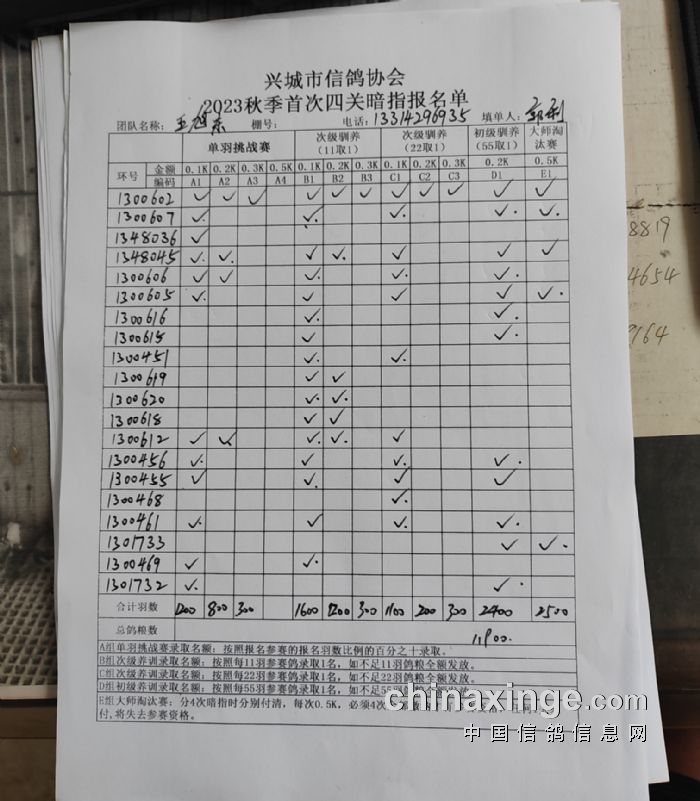 兴城市信鸽协会
2023秋季首次四关暗指报名单
团队名称: 王旭东 棚号: 电话: 13314296935 填单人:
单羽挑战赛 次级驯养(11取1) 次级驯养(22取1) 初级驯养(55取1) 大师淘汰赛
金额 0.1K 0.2K 0.3K 0.5K 0.1K 0.2K 0.3K 0.1K 0.2K 0.3K 0.2K 0.5K
环号 编码 A1 A2 A3 A4 B1 B2 B3 C1 C2 C3 D1 E1
1300602 ✓ ✓ ✓ ✓ ✓ ✓ ✓ ✓ ✓ ✓ ✓
1300607 ✓ ✓ ✓ ✓ ✓
1348036 ✓
1348045 ✓ ✓ ✓ ✓ ✓ ✓ ✓
1300606 ✓ ✓ ✓ ✓ ✓
1300605 ✓ ✓ ✓ ✓ ✓
1300616 ✓ ✓
1300615 ✓ ✓
1300451 ✓ ✓
1300619 ✓ ✓
1300620 ✓ ✓
1300618 ✓ ✓
1300612 ✓ ✓ ✓ ✓ ✓
1300456 ✓ ✓ ✓ ✓
1300455 ✓ ✓ ✓ ✓
1300468 ✓
1300461 ✓ ✓ ✓ ✓
1301733 ✓ ✓
1300469 ✓ ✓
1301732 ✓ ✓
合计羽数 1200 800 300 1600 1200 300 1100 200 300 2400 2500
总鸽粮数 11900.
A组单羽挑战赛录取名额: 按照报名参赛的报名羽数比例的百分之十录取。
B组次级养训录取名额: 按照每11羽参赛鸽录取1名, 如不足11羽鸽粮全额发放。
C组次级养训录取名额: 按照每22羽参赛鸽录取1名, 如不足22羽鸽粮全额发放。
D组初级养训录取名额: 按照每55羽参赛鸽录取1名, 如不足
E组大师淘汰赛: 分4次暗指时分别付清, 每次0.5K, 必须4次
付, 将失去参赛资格。
8819
4654
164
chinaxinge.com
中国信鸽信息网